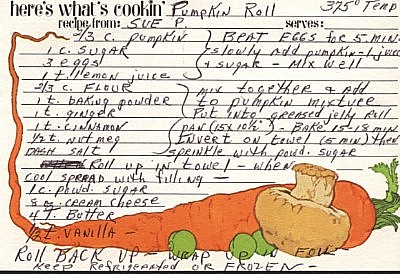 here's what's cookin' Pumpkin Roll 375° Temp
recipe from: SUE P. serves:
2/3 c. pumpkin BEAT EGGS for 5 min.
1 c. SUGAR slowly add pumpkin - l. juice
3 eggs + sugar - Mix well
1 t. lemon juice
2/3 c. FLOUR mix together & add
1 t. baking powder to pumpkin mixture
1 t. ginger Put into greased jelly Roll
1 t. cinnamon pan (15x10½") - Bake 15-18 min
1/2 t. nutmeg Invert on towel (5 min) then
DASH SALT sprinkle with powd. sugar
Roll up in towel - when
cool SPREAD with filling -
1 c. powd. SUGAR
8 oz. cream cheese
4 T. Butter
1/2 t. VANILLA -
Roll BACK UP - WRAP UP IN FOIL
KEEP Refrigerated OR FROZEN -